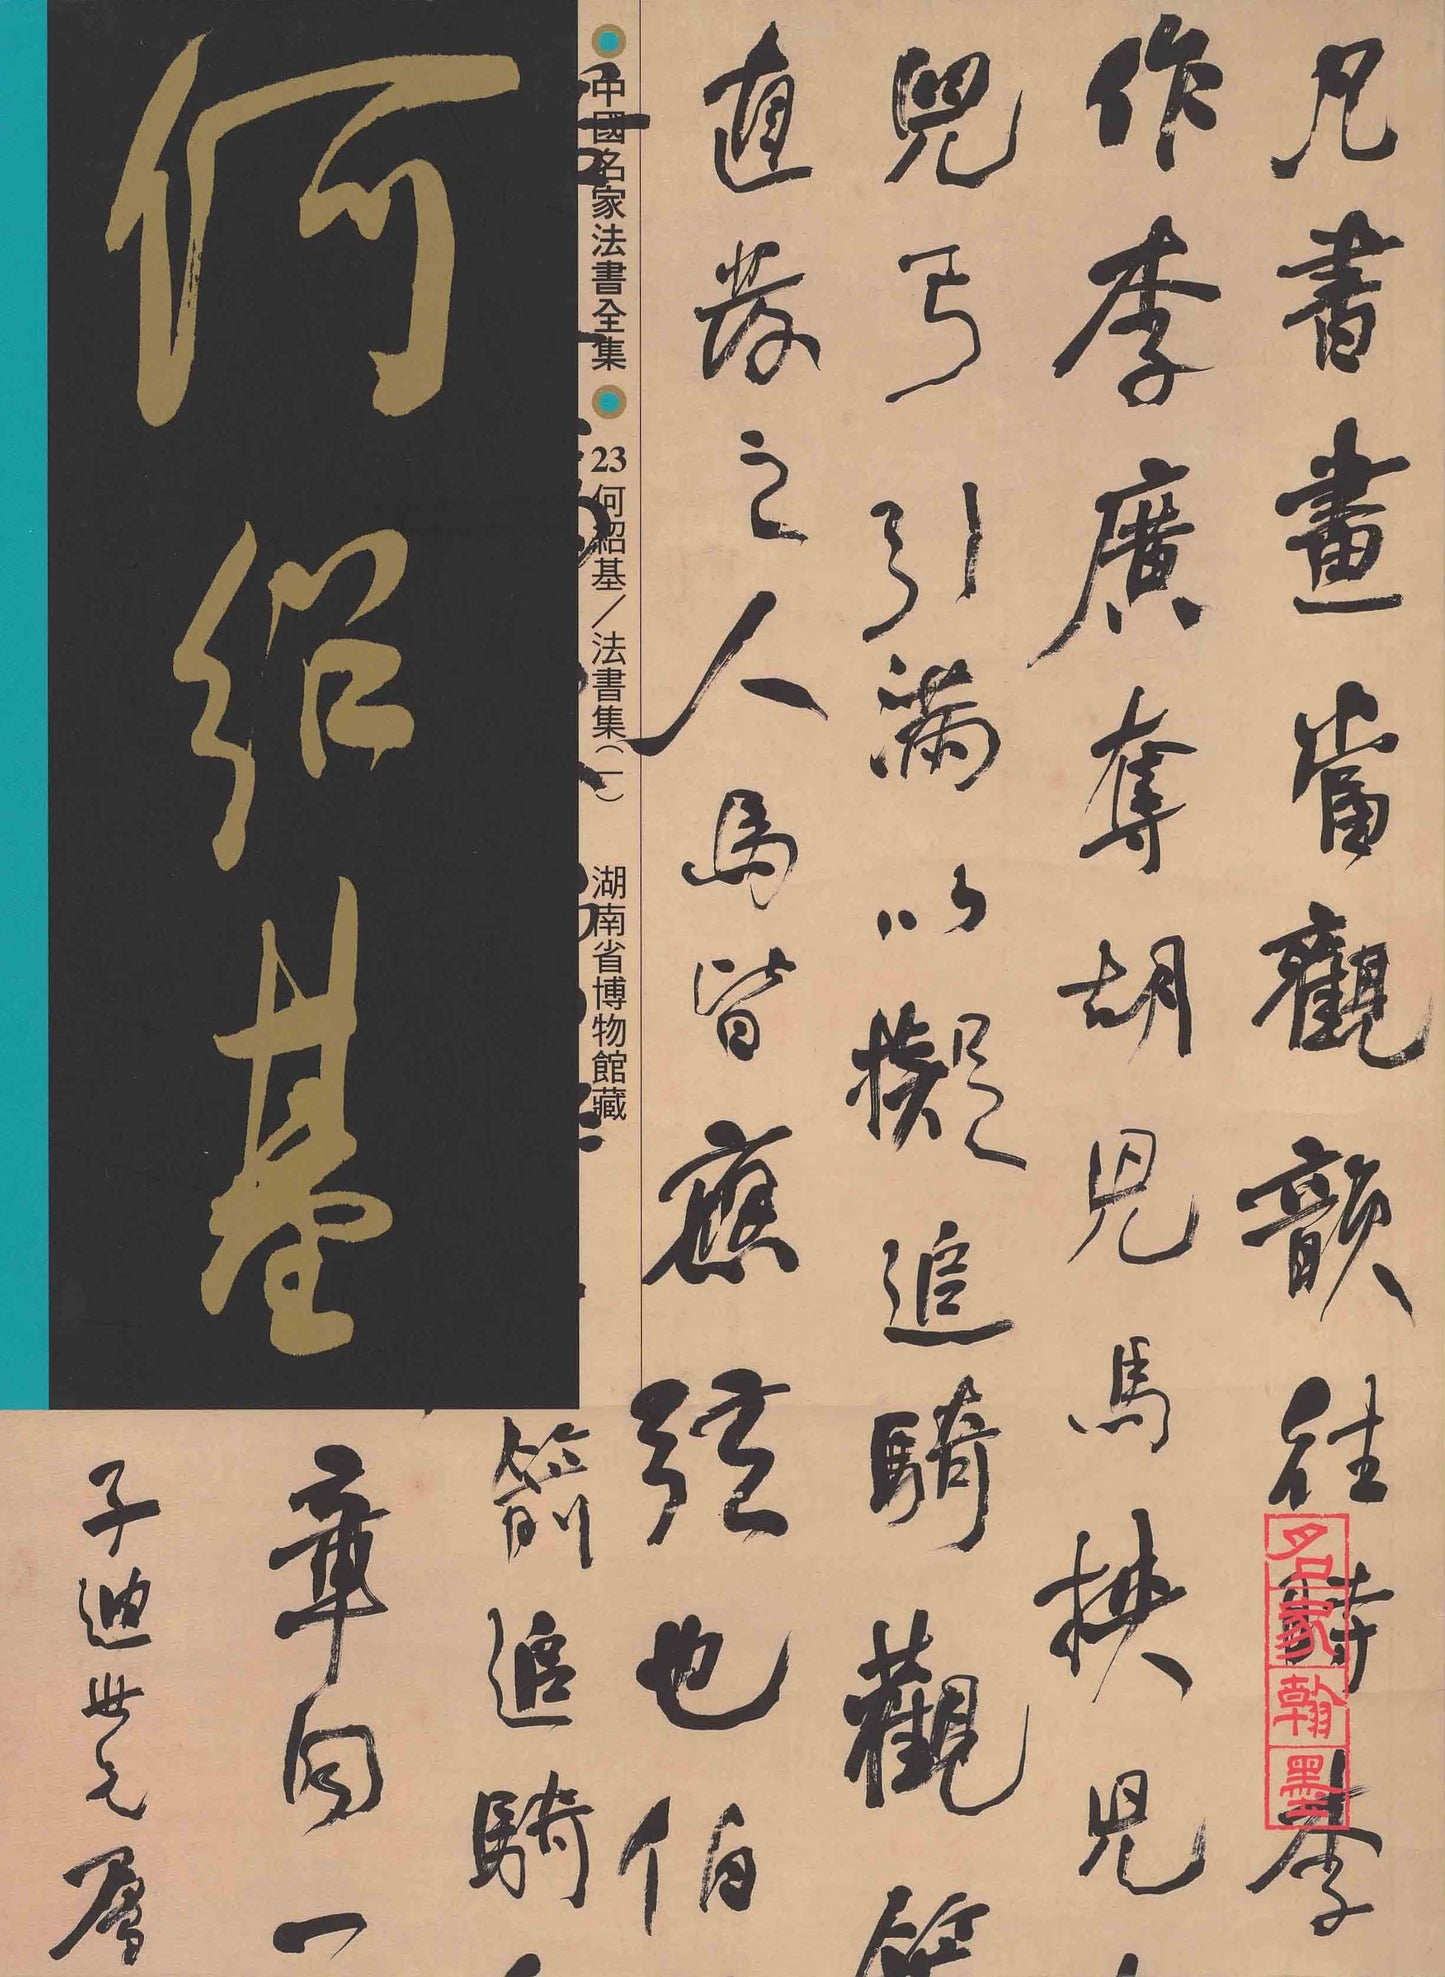 凡書畫當觀韻往時李
作李廣奪胡兒馬挾兒
兒弓引滿以擬追騎觀箭
直發之人馬皆應弦也伯
中國名家法書全集 23 何紹基/法書集(一) 湖南省博物館藏
何紹基
箭追騎
章同一
子迪世兄屬
名家翰墨